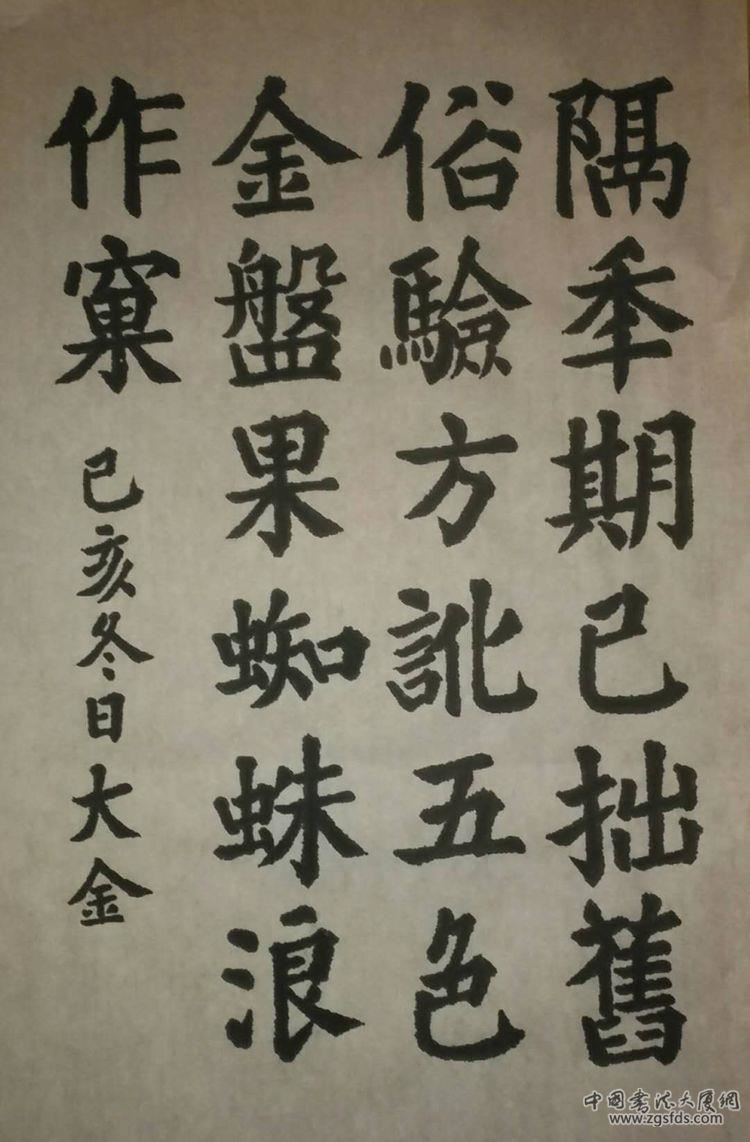 隔季期已拙舊
俗驗方訛五色
金盤果蜘蛛浪
作窠
己亥冬日大金
中国书法大厦網
www.zgsfds.com